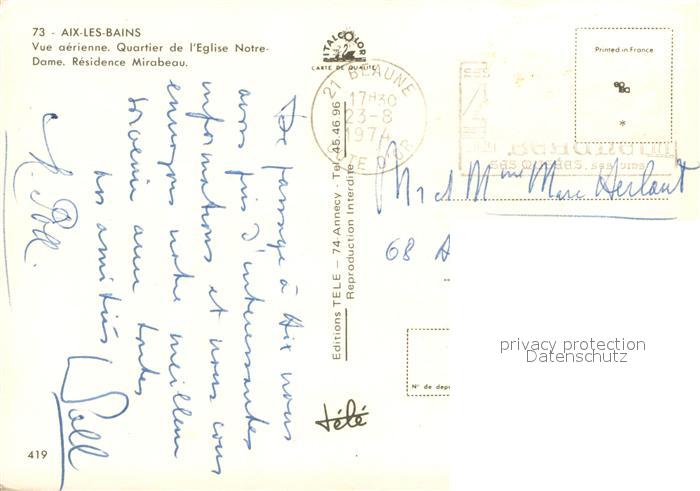 73 - AIX-LES-BAINS
Vue aérienne. Quartier de l'Eglise Notre-
Dame. Résidence Mirabeau.
ITALCOLOR
CARTE DE QUALITÉ
21 BEAUNE
17H30
23-8
1974
COTE D'OR
Printed in France
De passage à Aix nous
avons pris d'intéressantes
informations et nous vous
envoyons notre meilleur
souvenir avec toutes
nos amitiés
Mr et Mme Marc
68 A
Editions TELE - 74 Annecy - Tel. 45.46 96
Reproduction Interdite
N° de dep
télé
419
privacy protection
Datenschutz